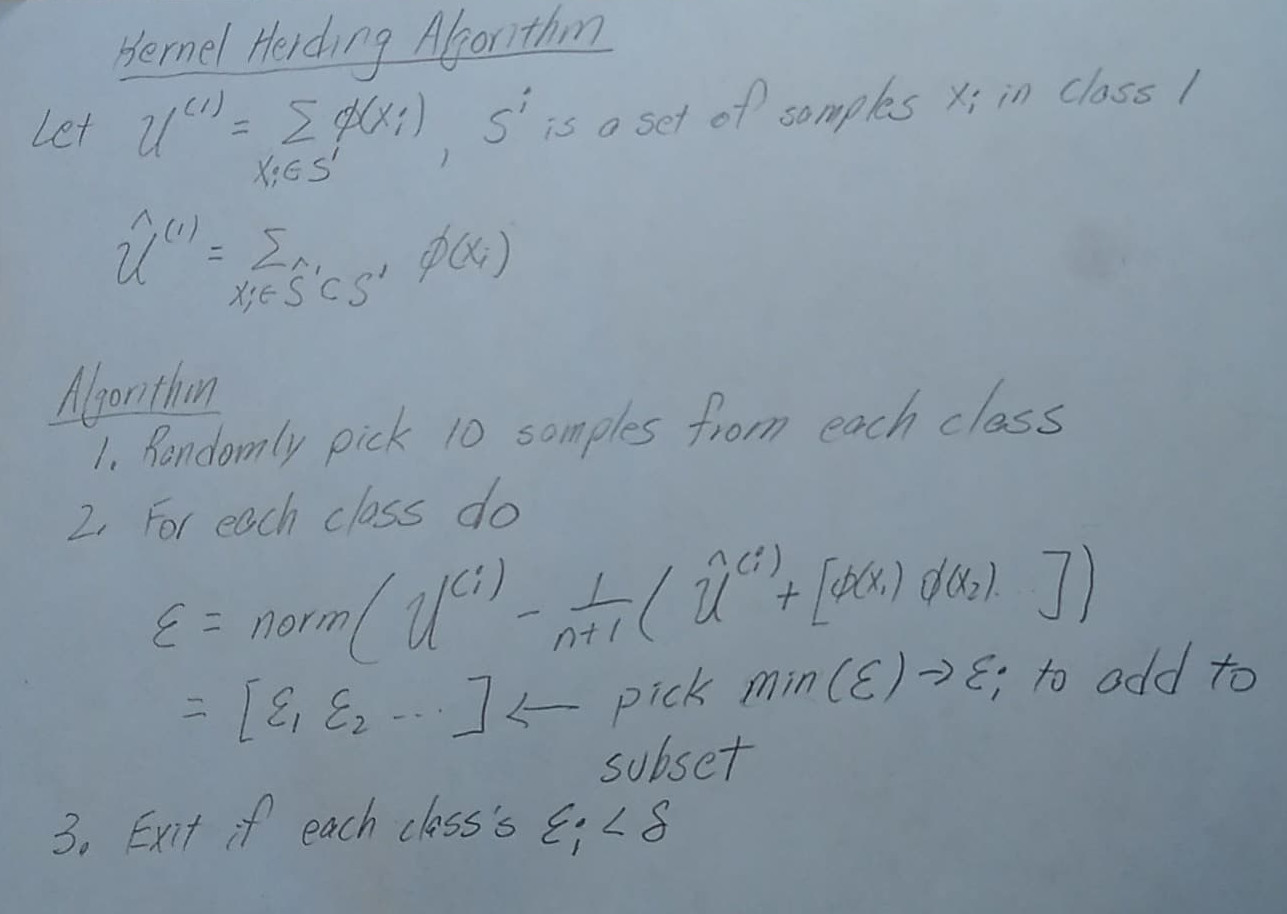 Kernel Herding Algorithm
Let U^(1) = Σ_{x_i∈S^1} φ(x_i), S^i is a set of samples x_i in class 1
Û^(1) = Σ_{x_i∈Ŝ^1⊂S^1} φ(x_i)
Algorithm
1. Randomly pick 10 samples from each class
2. For each class do
ε = norm(U^(i) - 1/(n+1) (Û^(i) + [φ(x_1) φ(x_2)... ])
= [ε_1 ε_2 --- ] ← pick min(ε) → ε_i to add to
subset
3. Exit if each class's ε_i < δ